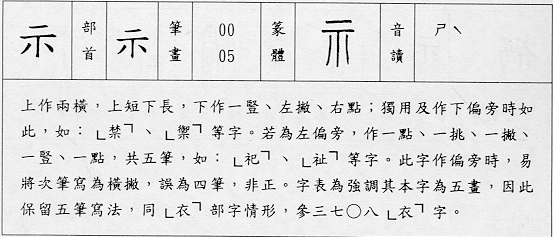 示 部首 示 筆畫 00 05 篆體 示 音讀 ㄕˋ
上作兩橫，上短下長，下作一豎、左撇、右點；獨用及作下偏旁時如
此，如：「禁」、「禦」等字。若為左偏旁，作一點、一挑、一撇、
一豎、一點，共五筆，如：「祀」、「祉」等字。此字作偏旁時，易
將次筆寫為橫撇，誤為四筆，非正。字表為強調其本字為五畫，因此
保留五筆寫法，同「衣」部字情形，參三七〇八「衣」字。